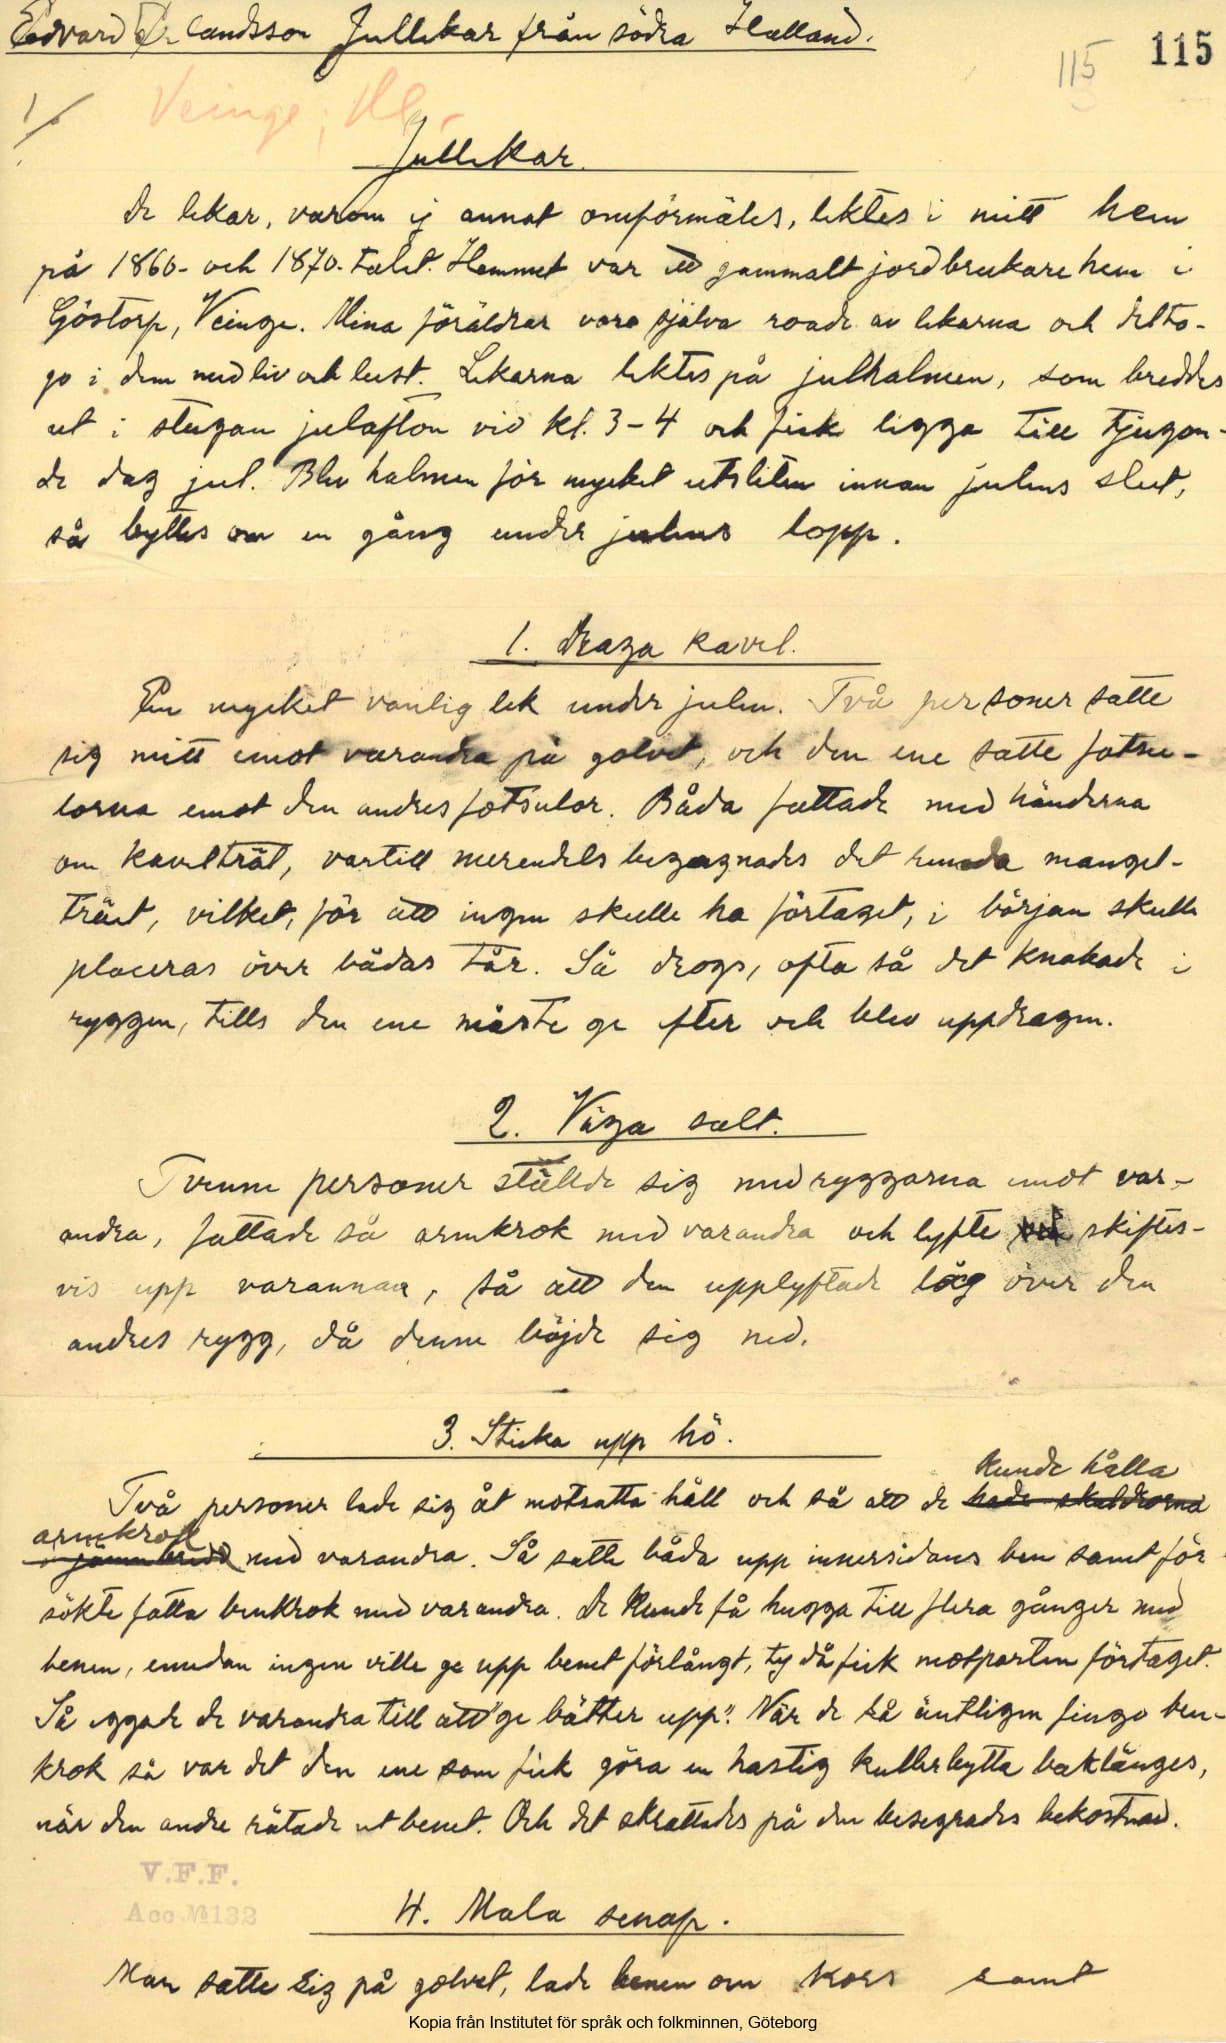 Edvard Erlandsson Jullekar från södra Halland.
115 115
1/. Veinge, Hl.
Jullekar.
De lekar, varom ej annat omförmäles, lektes i mitt hem
på 1860- och 1870-talet. Hemmet var ett gammalt jordbrukarehem i
Göstorp, Veinge. Mina föräldrar voro själva roade av lekarna och delto-
go i dem med liv och lust. Lekarna lektes på julhalmen, som breddes
ut i stugan julafton vid kl. 3-4 och fick ligga till tjugon-
de dag jul. Blev halmen för mycket utsliten innan julens slut,
så byttes om en gång under julens lopp.
1. Draga kavel.
En mycket vanlig lek under julen. Två personer satte
sig mitt emot varandra på golvet, och den ene satte fotsu-
lorna emot den andres fotsulor. Båda fattade med händerna
om kavelträt, vartill merendels begagnades det runda mangel-
träet, vilket, för att ingen skulle ha förtaget, i början skulle
placeras över bådas tår. Så drogs, ofta så det knakade i
ryggen, tills den ene måste ge efter och blev uppdragen.
2. Väga salt.
Tvenne personer ställde sig med ryggarna emot var-
andra, fattade så armkrok med varandra och lyfte så skiftes-
vis upp varannan, så att den upplyftade låg över den
andres rygg, då denne böjde sig ned.
3. Sticka upp hö.
kunde hålla
Två personer lade sig åt motsatta håll och så att de hade skuldrorna
armkrok
i jämnbredd med varandra. Så satte båda upp innersidans ben samt för-
sökte fatta benkrok med varandra. De kunde få hugga till flera gånger med
benen, emedan ingen ville ge upp benet förlångt, ty då fick motparten förtaget.
Så eggade de varandra till att "ge bätter upp". När de så äntligen fingo ben-
krok så var det den ene som fick göra en hastig kullerbytta baklänges,
när den andre rätade ut benet. Och det skrattades på den besegrades bekostnad.
V.F.F.
Acc №132
4. Mala senap.
Man satte sig på golvet, lade benen om kors samt
Kopia från Institutet för språk och folkminnen, Göteborg